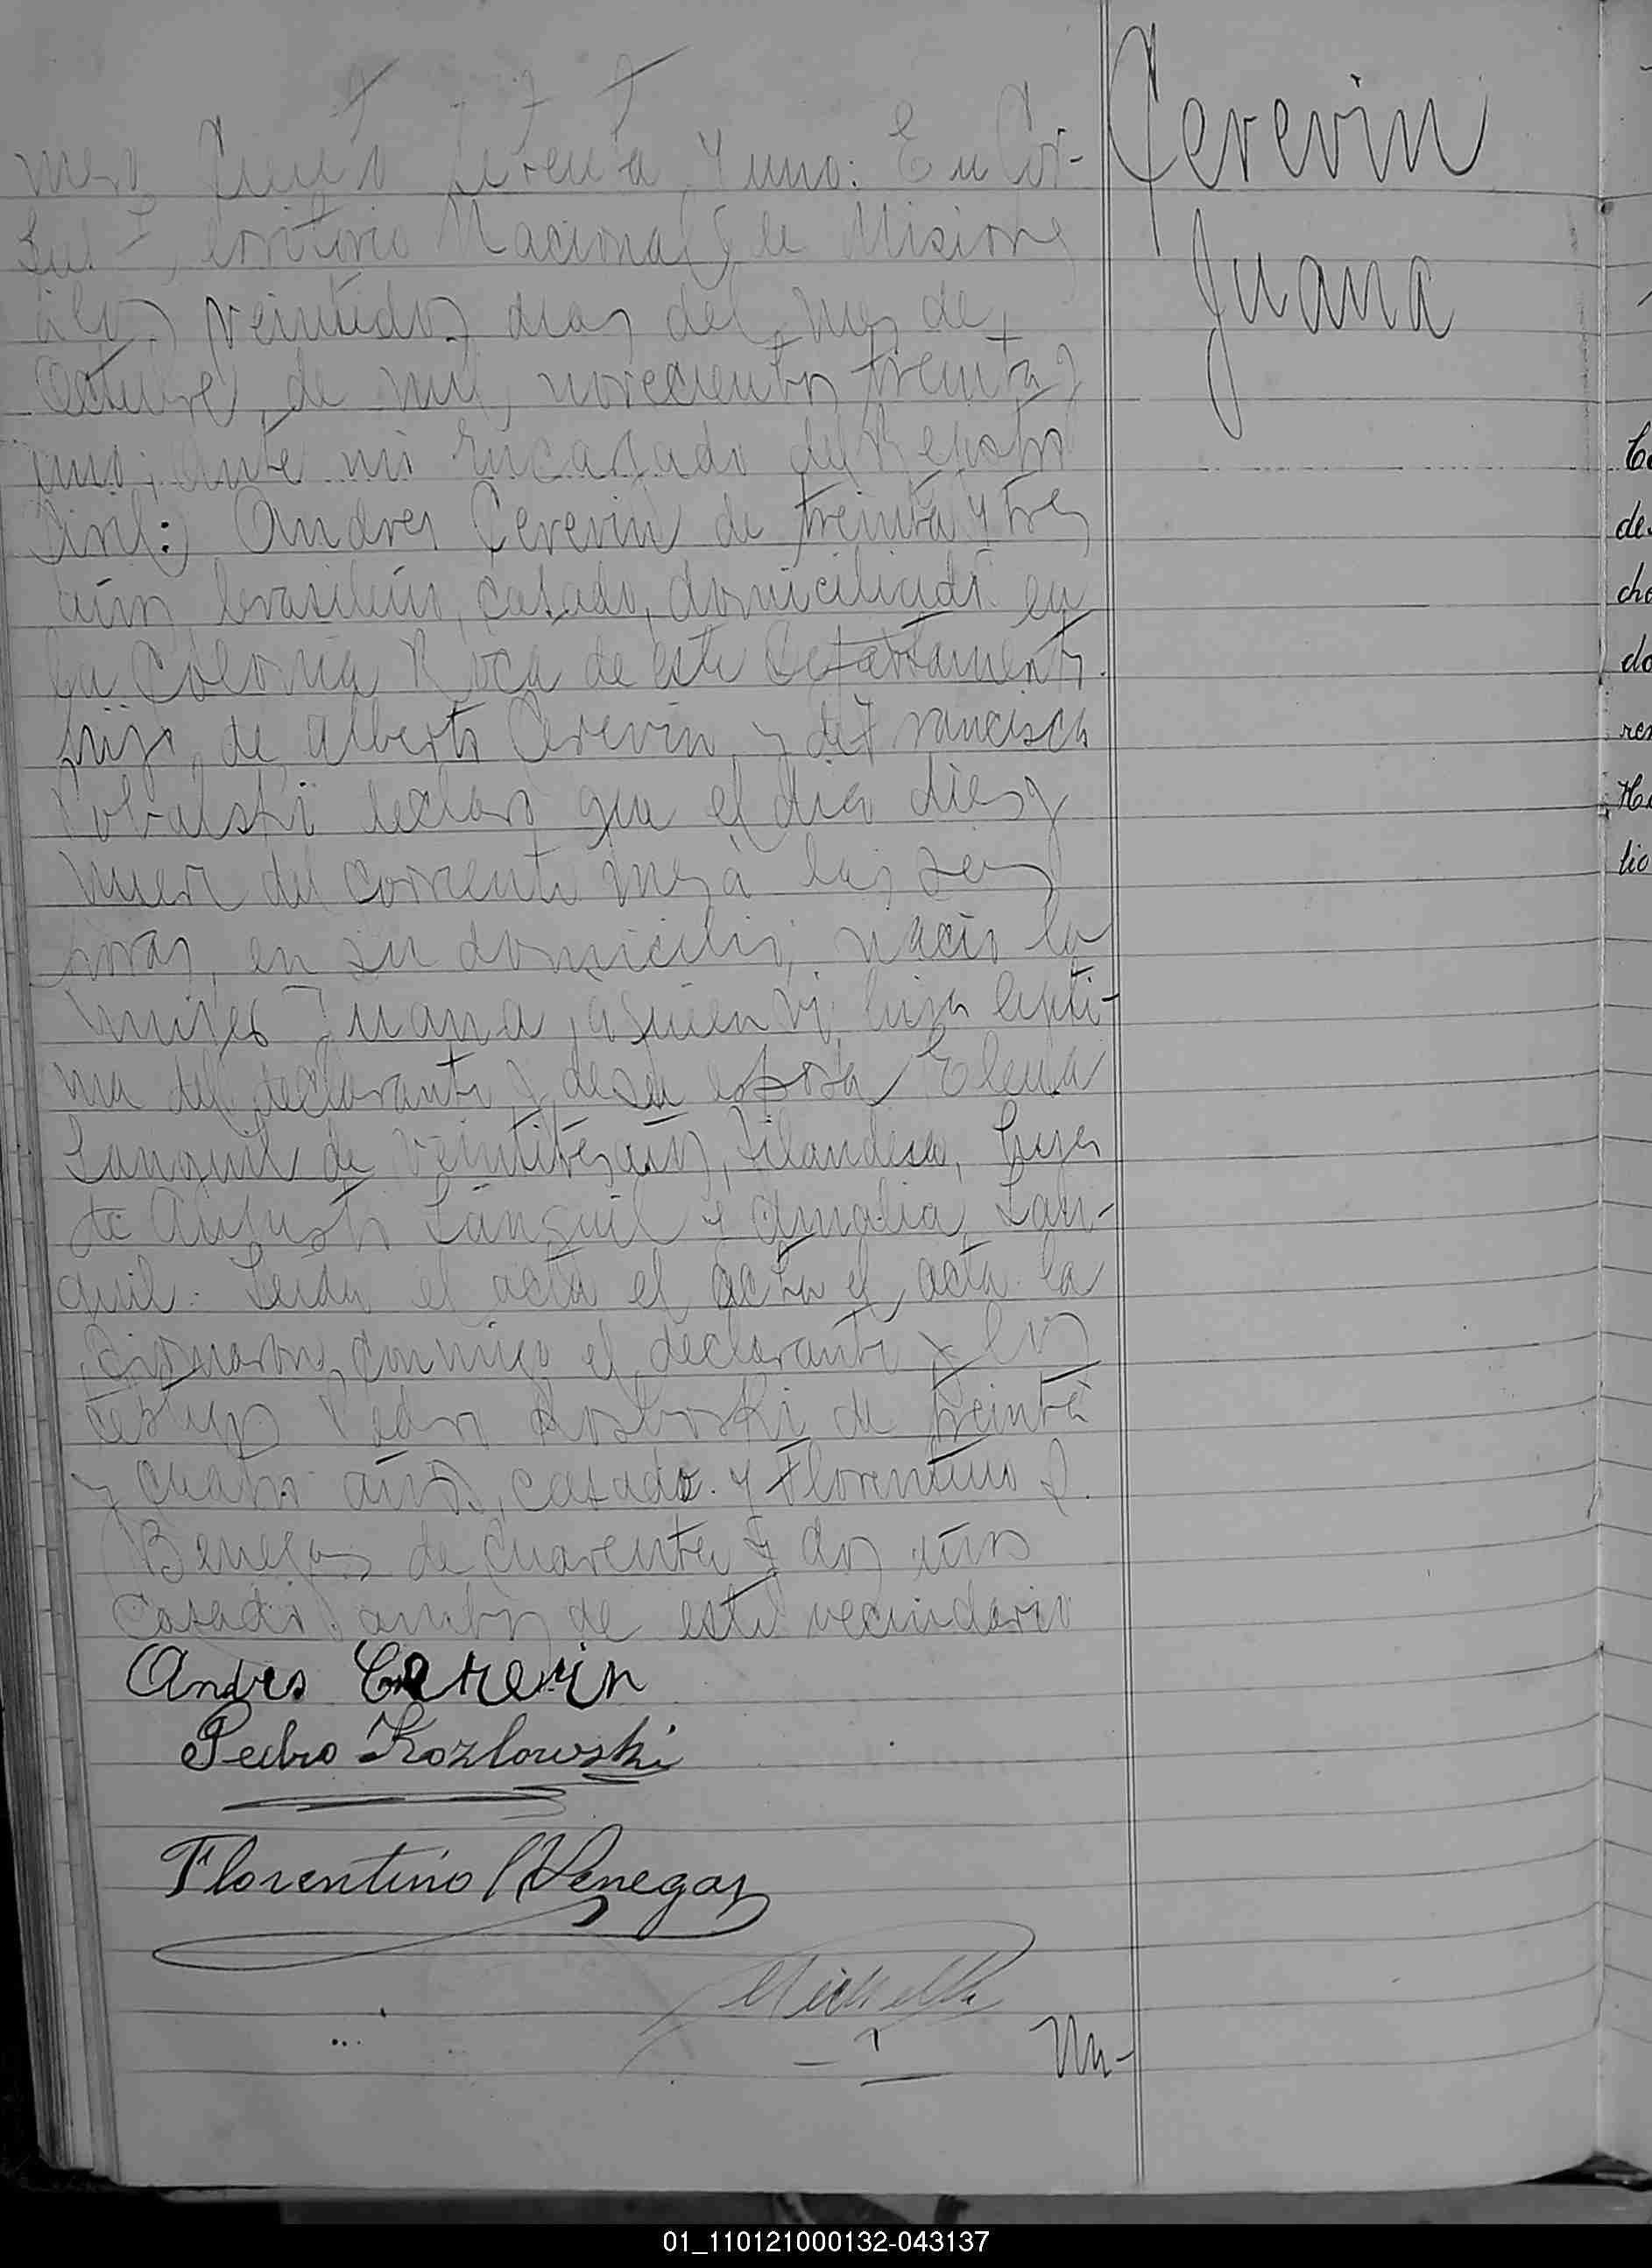 Cerevin
Juana
mero Ciento sesenta y uno: En Cor-
territorio Nacional de Misiones
a los veintidos dias del mes de
Octubre de mil novecientos treinta y
uno; ante mi Encargado del Registro
Civil: Andres Cerevin de treinta y tres
años brasilero, casado, domiciliado en
la Colonia Roca de este Departamento.
hijo de Alberto Cerevin y de Francisca
declaro que el dia dies y
nueve del corriente mes a las seis
horas, en su domicilio, nacio la
mujer Juana, a quien vi, hija lejiti-
ma del declarante y de su esposa Elena
Sanguil de veintitres años, filandesa, hija
de Augusto Sanguil y Amalia San-
guil. Leida el acta el acta el acta la
firmaron conmigo el declarante y los
testigos Pedro Koslovski de treinta
y cuatro años, casado. y Florentino S.
Benegas de cuarenta y dos años
casado ambos de este vecindario
Andres Cerevin
Pedro Kozlowski
Florentino Venegas
Nu-
Ce
de
cho
do
ren
Ho
lio
01_110121000132-043137